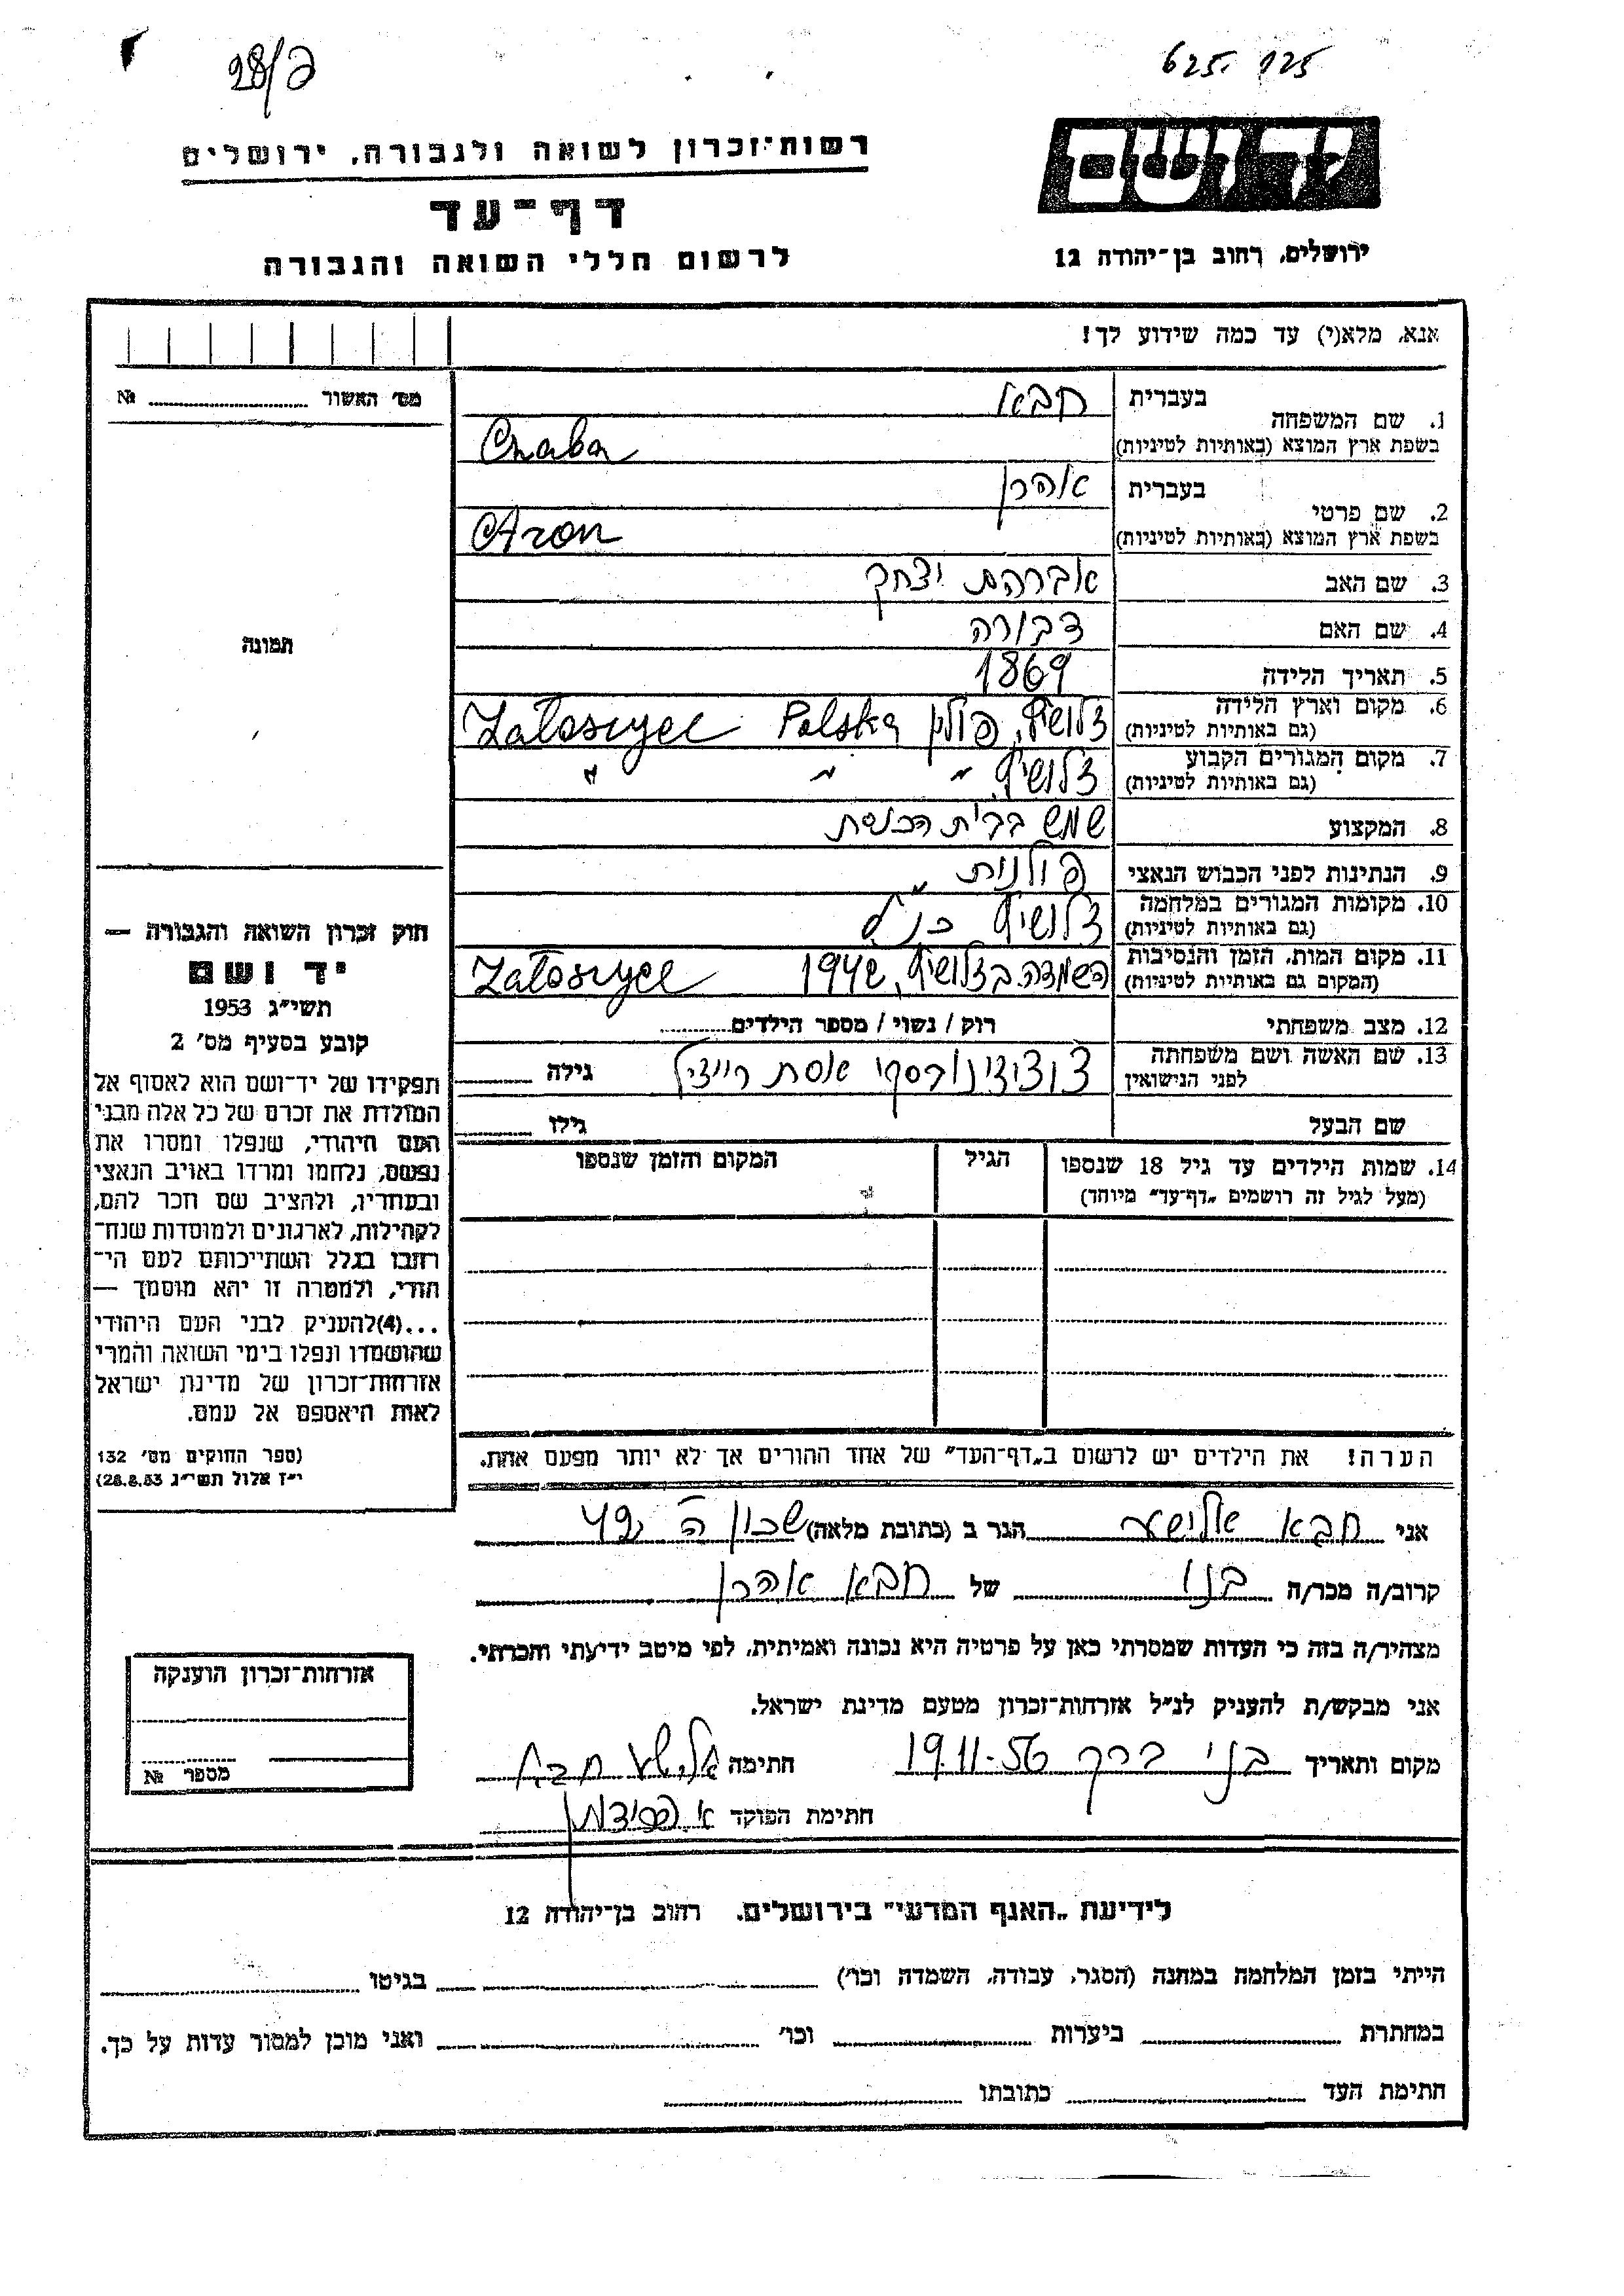 28/ב
625. 125
יד ושם
רשות־זכרון לשואה ולגבורה, ירושלים
דף־עד
לרשום חללי השואה והגבורה
ירושלים, רחוב בן־יהודה 12
אנא, מלא(י) עד כמה שידוע לך!
מס׳ האשור № ........
1. שם המשפחה
בעברית חבא
בשפת ארץ המוצא (באותיות לטיניות) Chaba
2. שם פרטי
בעברית אהרן
בשפת ארץ המוצא (באותיות לטיניות) Aron
3. שם האב אברהם יצחק
4. שם האם דבורה
5. תאריך הלידה 1869
6. מקום וארץ הלידה (גם באותיות לטיניות) זלושיץ, פולין Polska Załoszyce
7. מקום המגורים הקבוע (גם באותיות לטיניות) זלושיץ " " "
8. המקצוע שמש בבית הכנסת
9. הנתינות לפני הכבוש הנאצי פולנית
10. מקומות המגורים במלחמה (גם באותיות לטיניות) זלושיץ כנ"ל
11. מקום המות, הזמן והנסיבות (המקום גם באותיות לטיניות) השמדה בזלושיץ, 1942 Załoszyce
12. מצב משפחתי רוק / נשוי / מספר הילדים........
13. שם האשה ושם משפחתה לפני הנישואין גילה
שם הבעל גילו
14. שמות הילדים עד גיל 18 שנספו
(מעל לגיל זה רושמים „דף־עד” מיוחד)
הגיל
המקום והזמן שנספו
תמונה
חוק זכרון השואה והגבורה —
יד ושם
תשי״ג 1953
קובע בסעיף מס׳ 2
תפקידו של יד־ושם הוא לאסוף אל
המולדת את זכרם של כל אלה מבני
העם היהודי, שנפלו ומסרו את
נפשם, נלחמו ומרדו באויב הנאצי
ובעוזריו, ולהציב שם וזכר להם,
לקהילות, לארגונים ולמוסדות שנח־
רחבו בגלל השתייכותם לעם הי־
הודי, ולמטרה זו יהא מוסמך —
...(4)להעניק לבני העם היהודי
שהושמדו ונפלו בימי השואה והמרי
אזרחות־זכרון של מדינת ישראל
לאות היאספם אל עמם.
(ספר החוקים מס׳ 132
י״ז אלול תשי״ג 28.8.53)
הערה! את הילדים יש לרשום ב„דף־העד” של אחד ההורים אך לא יותר מפעם אחת.
אני חבא אלישע הגר ב (כתובת מלאה) שכון ה
קרוב/ה מכר/ה בנו של חבא אהרן
מצהיר/ה בזה כי העדות שמסרתי כאן על פרטיה היא נכונה ואמיתית, לפי מיטב ידיעתי והכרתי.
אני מבקש/ת להעניק לנ״ל אזרחות־זכרון מטעם מדינת ישראל.
מקום ותאריך בני ברק 19.11.56 חתימה אלישע חבא
חתימת הפוקד
אזרחות־זכרון הוענקה
מספר №
לידיעת „האגף המדעי” בירושלים, רחוב בן־יהודה 12
הייתי בזמן המלחמה במחנה (הסגר, עבודה, השמדה וכו׳) בגיטו
במחתרת ביערות וכו׳ ואני מוכן למסור עדות על כך.
חתימת העד כתובתו